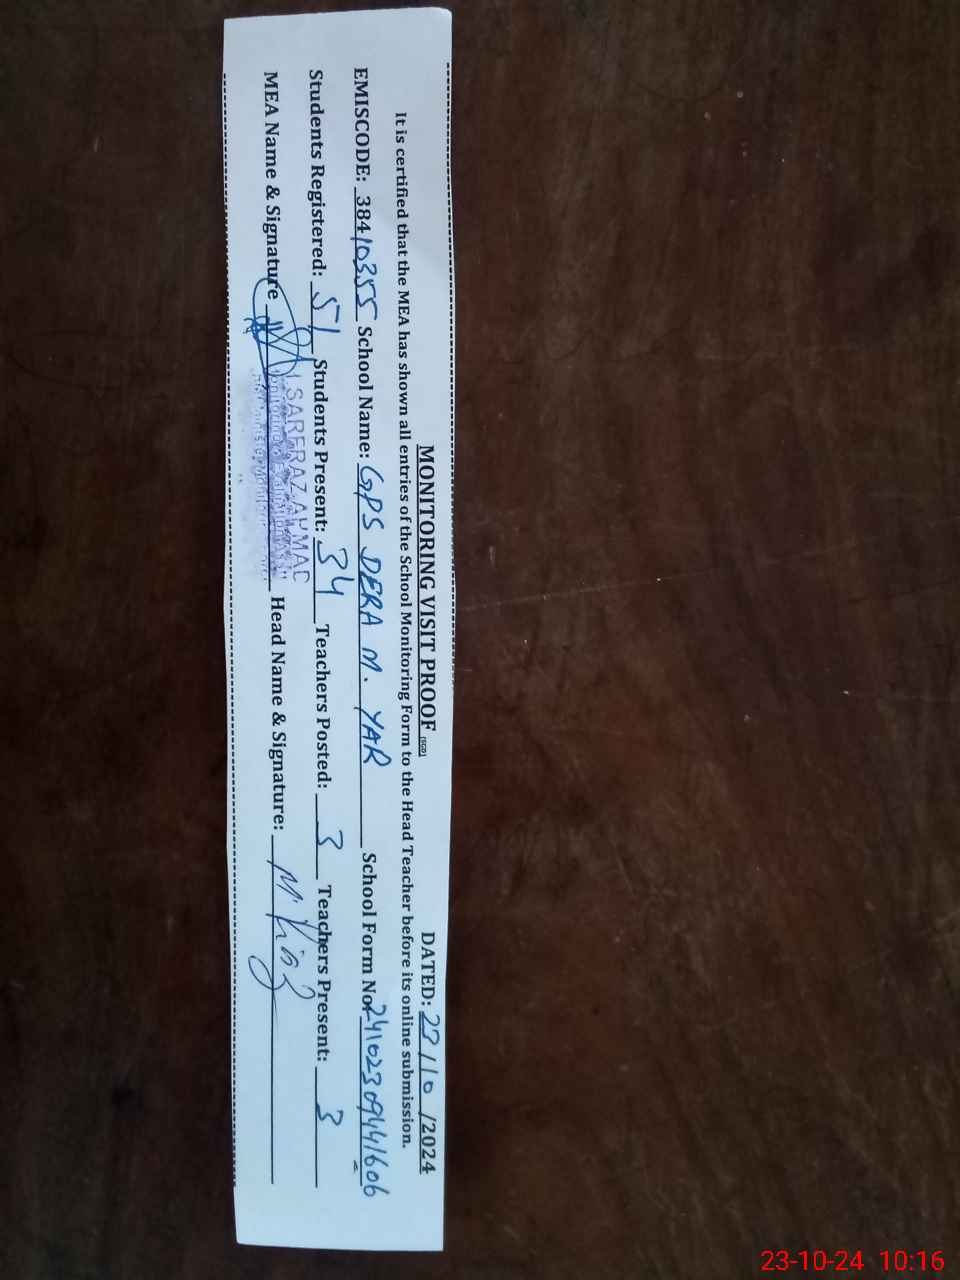 MONITORING VISIT PROOF (SGD) DATED: 23/10/2024
It is certified that the MEA has shown all entries of the School Monitoring Form to the Head Teacher before its online submission.
EMISCODE: 38410355 School Name: GPS DERA M. YAR School Form No: 24102309441606
Students Registered: 51 Students Present: 34 Teachers Posted: 3 Teachers Present: 3
MEA Name & Signature SARFRAZ AHMAD Head Name & Signature:
23-10-24 10:16